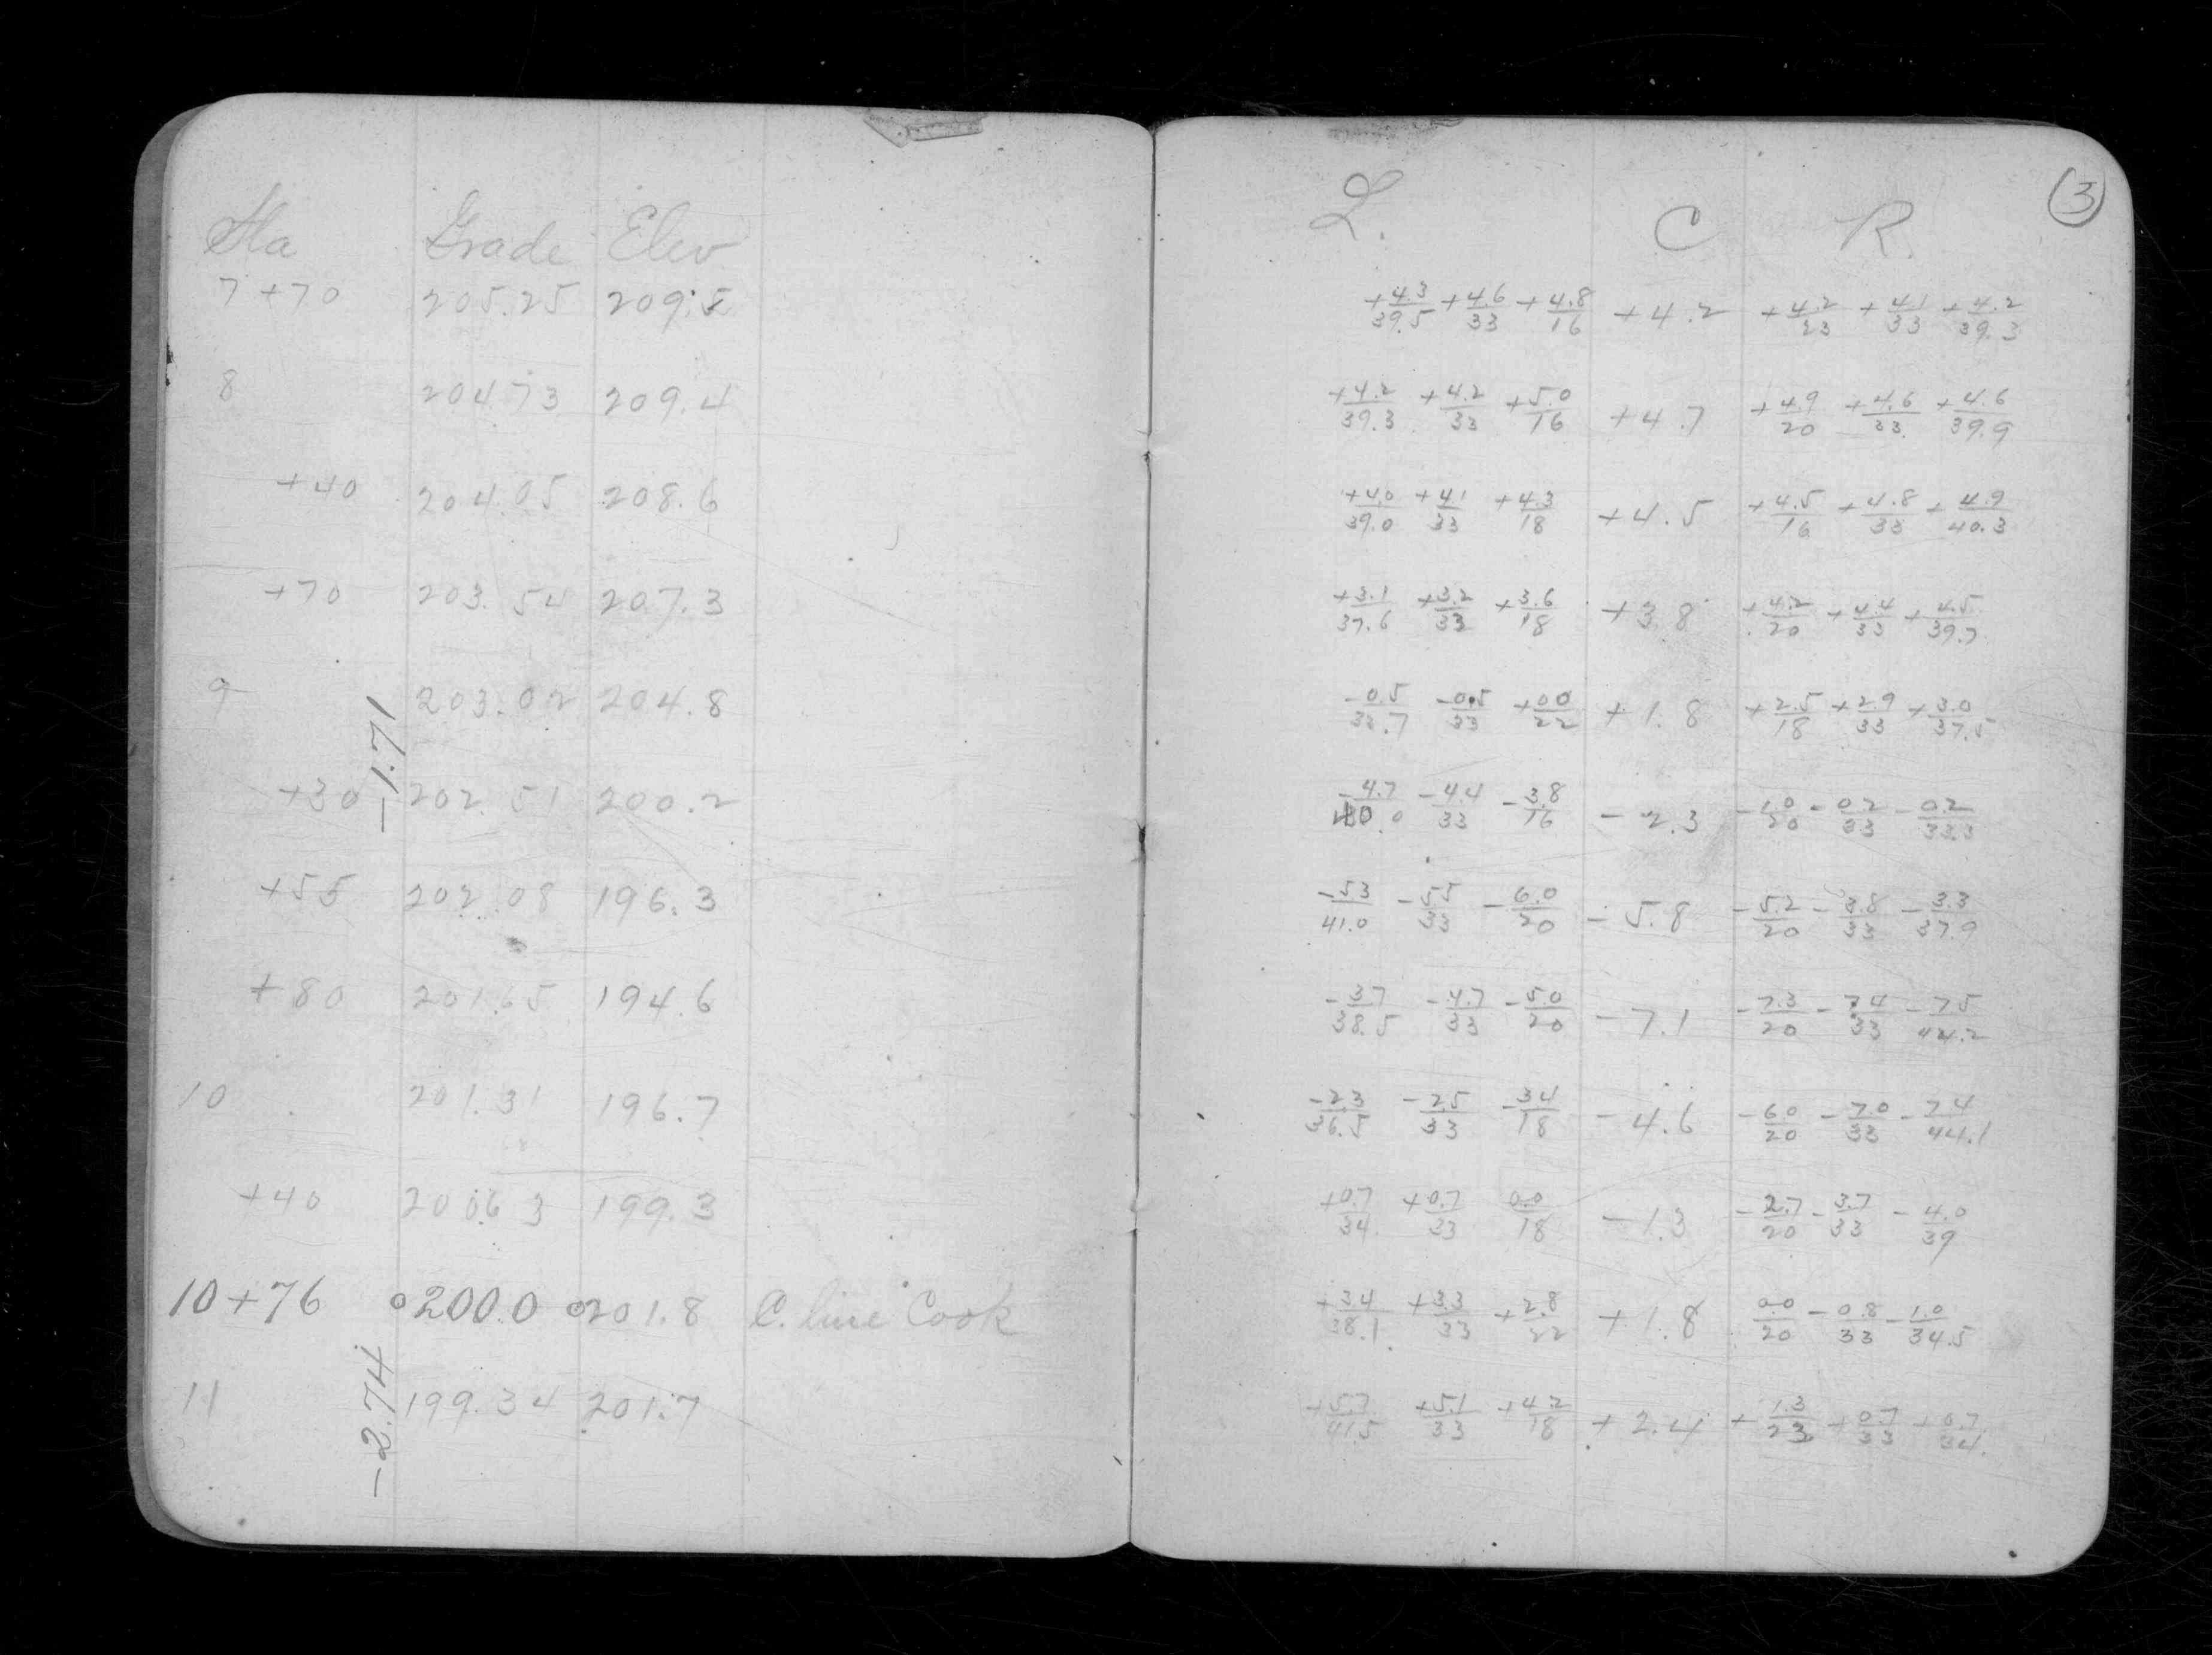 Sta Grade Elev L. C R. (3)
7+70 205.25 209.5 +4.3/39.5 +4.6/33 +4.8/16 +4.2 +4.2/23 +4.1/33 +4.2/39.3
8 204.73 209.4 +4.2/39.3 +4.2/33 +5.0/16 +4.7 +4.9/20 +4.6/33 +4.6/39.9
+40 204.05 208.6 +4.0/39.0 +4.1/33 +4.3/18 +4.5 +4.5/16 +4.8/33 +4.9/40.3
+70 203.54 207.3 +3.1/37.6 +3.2/33 +3.6/18 +3.8 +4.2/20 +4.4/33 +4.5/39.7
9 203.02 204.8 -0.5/33.7 -0.5/33 +0.0/22 +1.8 +2.5/18 +2.9/33 +3.0/37.5
-1.71
+30 202.51 200.2 -4.7/40.0 -4.4/33 -3.8/16 -2.3 -1.0/20 -0.2/33 -0.2/33.3
+55 202.08 196.3 -5.3/41.0 -5.5/33 -6.0/20 -5.8 -5.2/20 -3.8/33 -3.3/37.9
+80 201.65 194.6 -3.7/38.5 -4.7/33 -5.0/20 -7.1 -7.3/20 -7.4/33 -7.5/44.2
10 201.31 196.7 -2.3/36.5 -2.5/33 -3.4/18 -4.6 -6.0/20 -7.0/33 -7.4/44.1
+40 200.63 199.3 +0.7/34 +0.7/33 0.0/18 -1.3 -2.7/20 -3.7/33 -4.0/39
10+76 200.0 201.8 C. line Cook +3.4/38.1 +3.3/33 +2.8/22 +1.8 0.0/20 -0.8/33 -1.0/34.5
-2.74
11 199.34 201.7 +5.7/41.5 +5.1/33 +4.2/18 +2.4 +1.3/23 +0.7/33 +0.7/34.